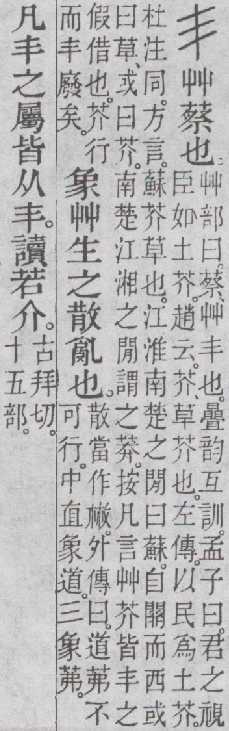 丯艸蔡也。
艸部曰。蔡、艸丯也。曡韵互訓。孟子曰。君之視
臣如土芥。趙云。芥、草芥也。左傳。以民爲土芥。
杜注同。方言。蘇芥草也。江淮南楚之閒曰蘇。自關而西或
曰草、或曰芥。南楚江湘之閒謂之莽。按凡言艸芥皆丯之
假借也。芥行
而丯廢矣。
象艸生之散亂也。
散當作㪔。外傳曰。道茀不
可行。中直象道。三象茀。
凡丯之屬皆从丯。讀若介。
古拜切。
十五部。